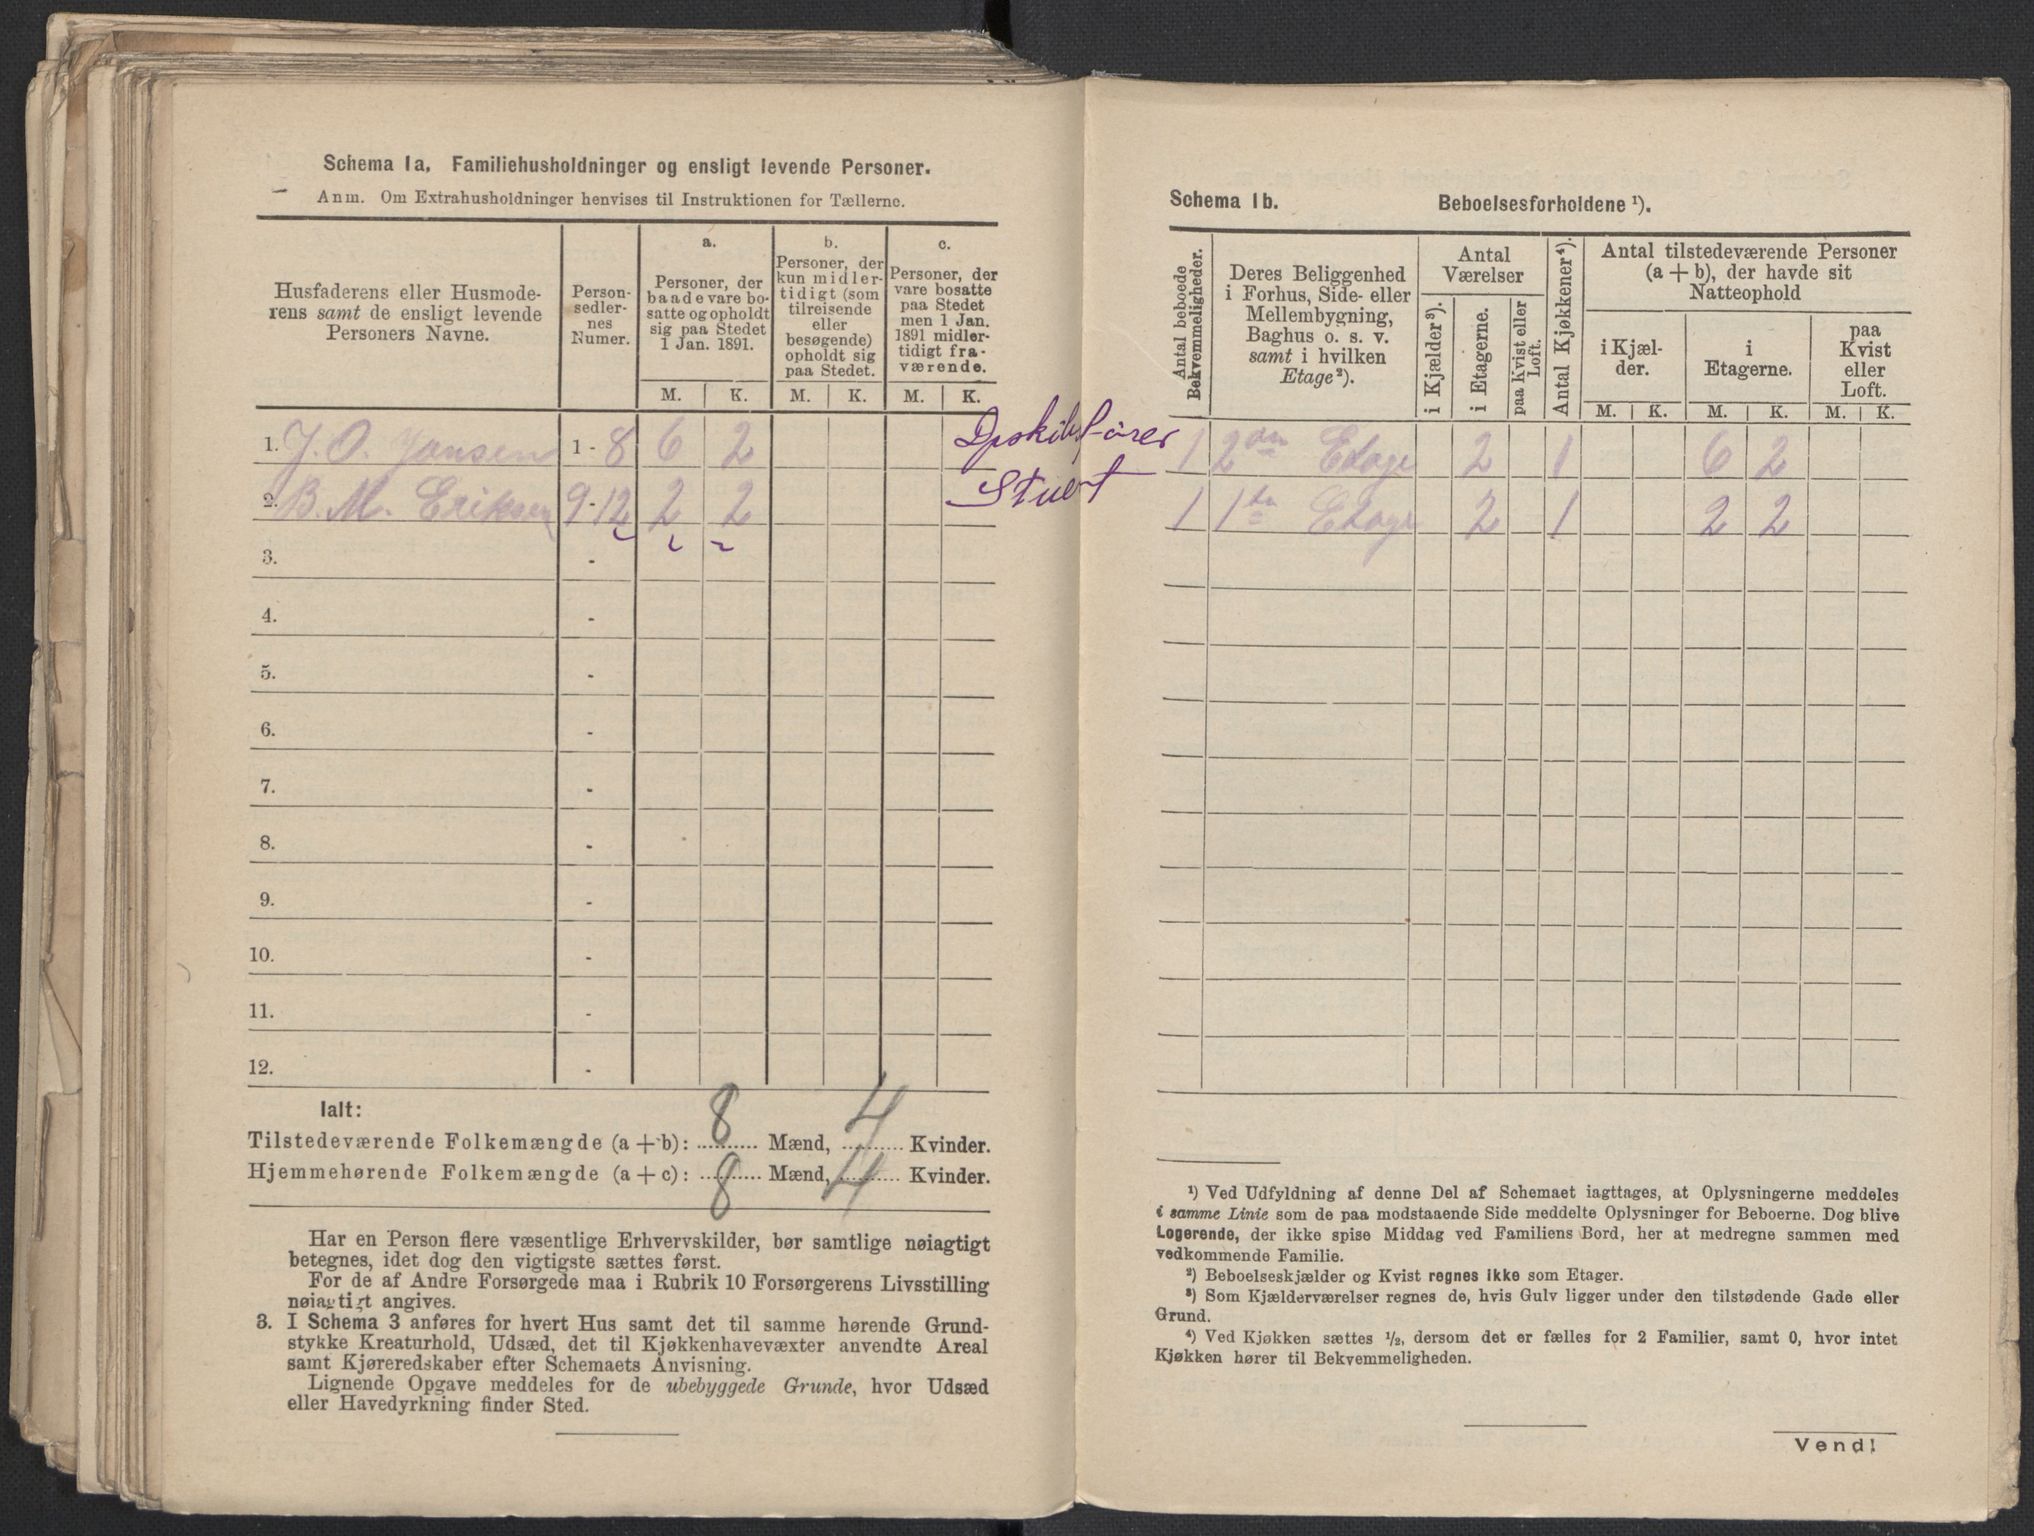 Schema 1a. Familiehusholdninger og ensligt levende Personer.
Anm. Om Extrahusholdninger henvises til Instruktionen for Tællerne.
Husfaderens eller Husmode-
rens samt de ensligt levende
Personers Navne.
Person-
sedler-
nes
Numer.
a.
Personer, der
baade vare bo-
satte og opholdt
sig paa Stedet
1 Jan. 1891.
b.
Personer, der
kun midler-
tidigt (som
tilreisende
eller
besøgende)
opholdt sig
paa Stedet.
c.
Personer, der
vare bosatte
paa Stedet
men 1 Jan.
1891 midler-
tidigt fra-
værende.
M. K. M. K. M. K.
1. J. O. Jansen 1 - 8 6 2
2. B. M. Eriksen 9 - 12 2 2 Stuert
3. -
4. -
5. -
6. -
7. -
8. -
9. -
10. -
11. -
12. -
Ialt:
Tilstedeværende Folkemængde (a + b): 8 Mænd, 4 Kvinder.
Hjemmehørende Folkemængde (a + c): 8 Mænd, 4 Kvinder.
Har en Person flere væsentlige Erhvervskilder, bør samtlige nøiagtigt
betegnes, idet dog den vigtigste sættes først.
For de af Andre Forsørgede maa i Rubrik 10 Forsørgerens Livsstilling
nøiagtigt angives.
3. I Schema 3 anføres for hvert Hus samt det til samme hørende Grund-
stykke Kreaturhold, Udsæd, det til Kjøkkenhavevæxter anvendte Areal
samt Kjøreredskaber efter Schemaets Anvisning.
Lignende Opgave meddeles for de ubebyggede Grunde, hvor Udsæd
eller Havedyrkning finder Sted.
Schema 1b. Beboelsesforholdene ¹).
Antal beboede
Bekvemmeligheder.
Deres Beliggenhed
i Forhus, Side- eller
Mellembygning,
Baghus o. s. v.
samt i hvilken
Etage²).
Antal
Værelser
i Kjælder³).
i Etagerne.
paa Kvist eller
Loft.
Antal Kjøkkener⁴).
Antal tilstedeværende Personer
(a + b), der havde sit
Natteophold
i Kjæl-
der.
i
Etagerne.
paa
Kvist
eller
Loft.
M. K. M. K. M. K.
1 2den Etage 2 1 6 2
1 1ste Etage 2 1 2 2
¹) Ved Udfyldning af denne Del af Schemaet iagttages, at Oplysningerne meddeles
i samme Linie som de paa modstaaende Side meddelte Oplysninger for Beboerne. Dog blive
Logerende, der ikke spise Middag ved Familiens Bord, her at medregne sammen med
vedkommende Familie.
²) Beboelseskjælder og Kvist regnes ikke som Etager.
³) Som Kjælderværelser regnes de, hvis Gulv ligger under den tilstødende Gade eller
Grund.
⁴) Ved Kjøkken sættes ½, dersom det er fælles for 2 Familier, samt 0, hvor intet
Kjøkken hører til Bekvemmeligheden.
Vend!